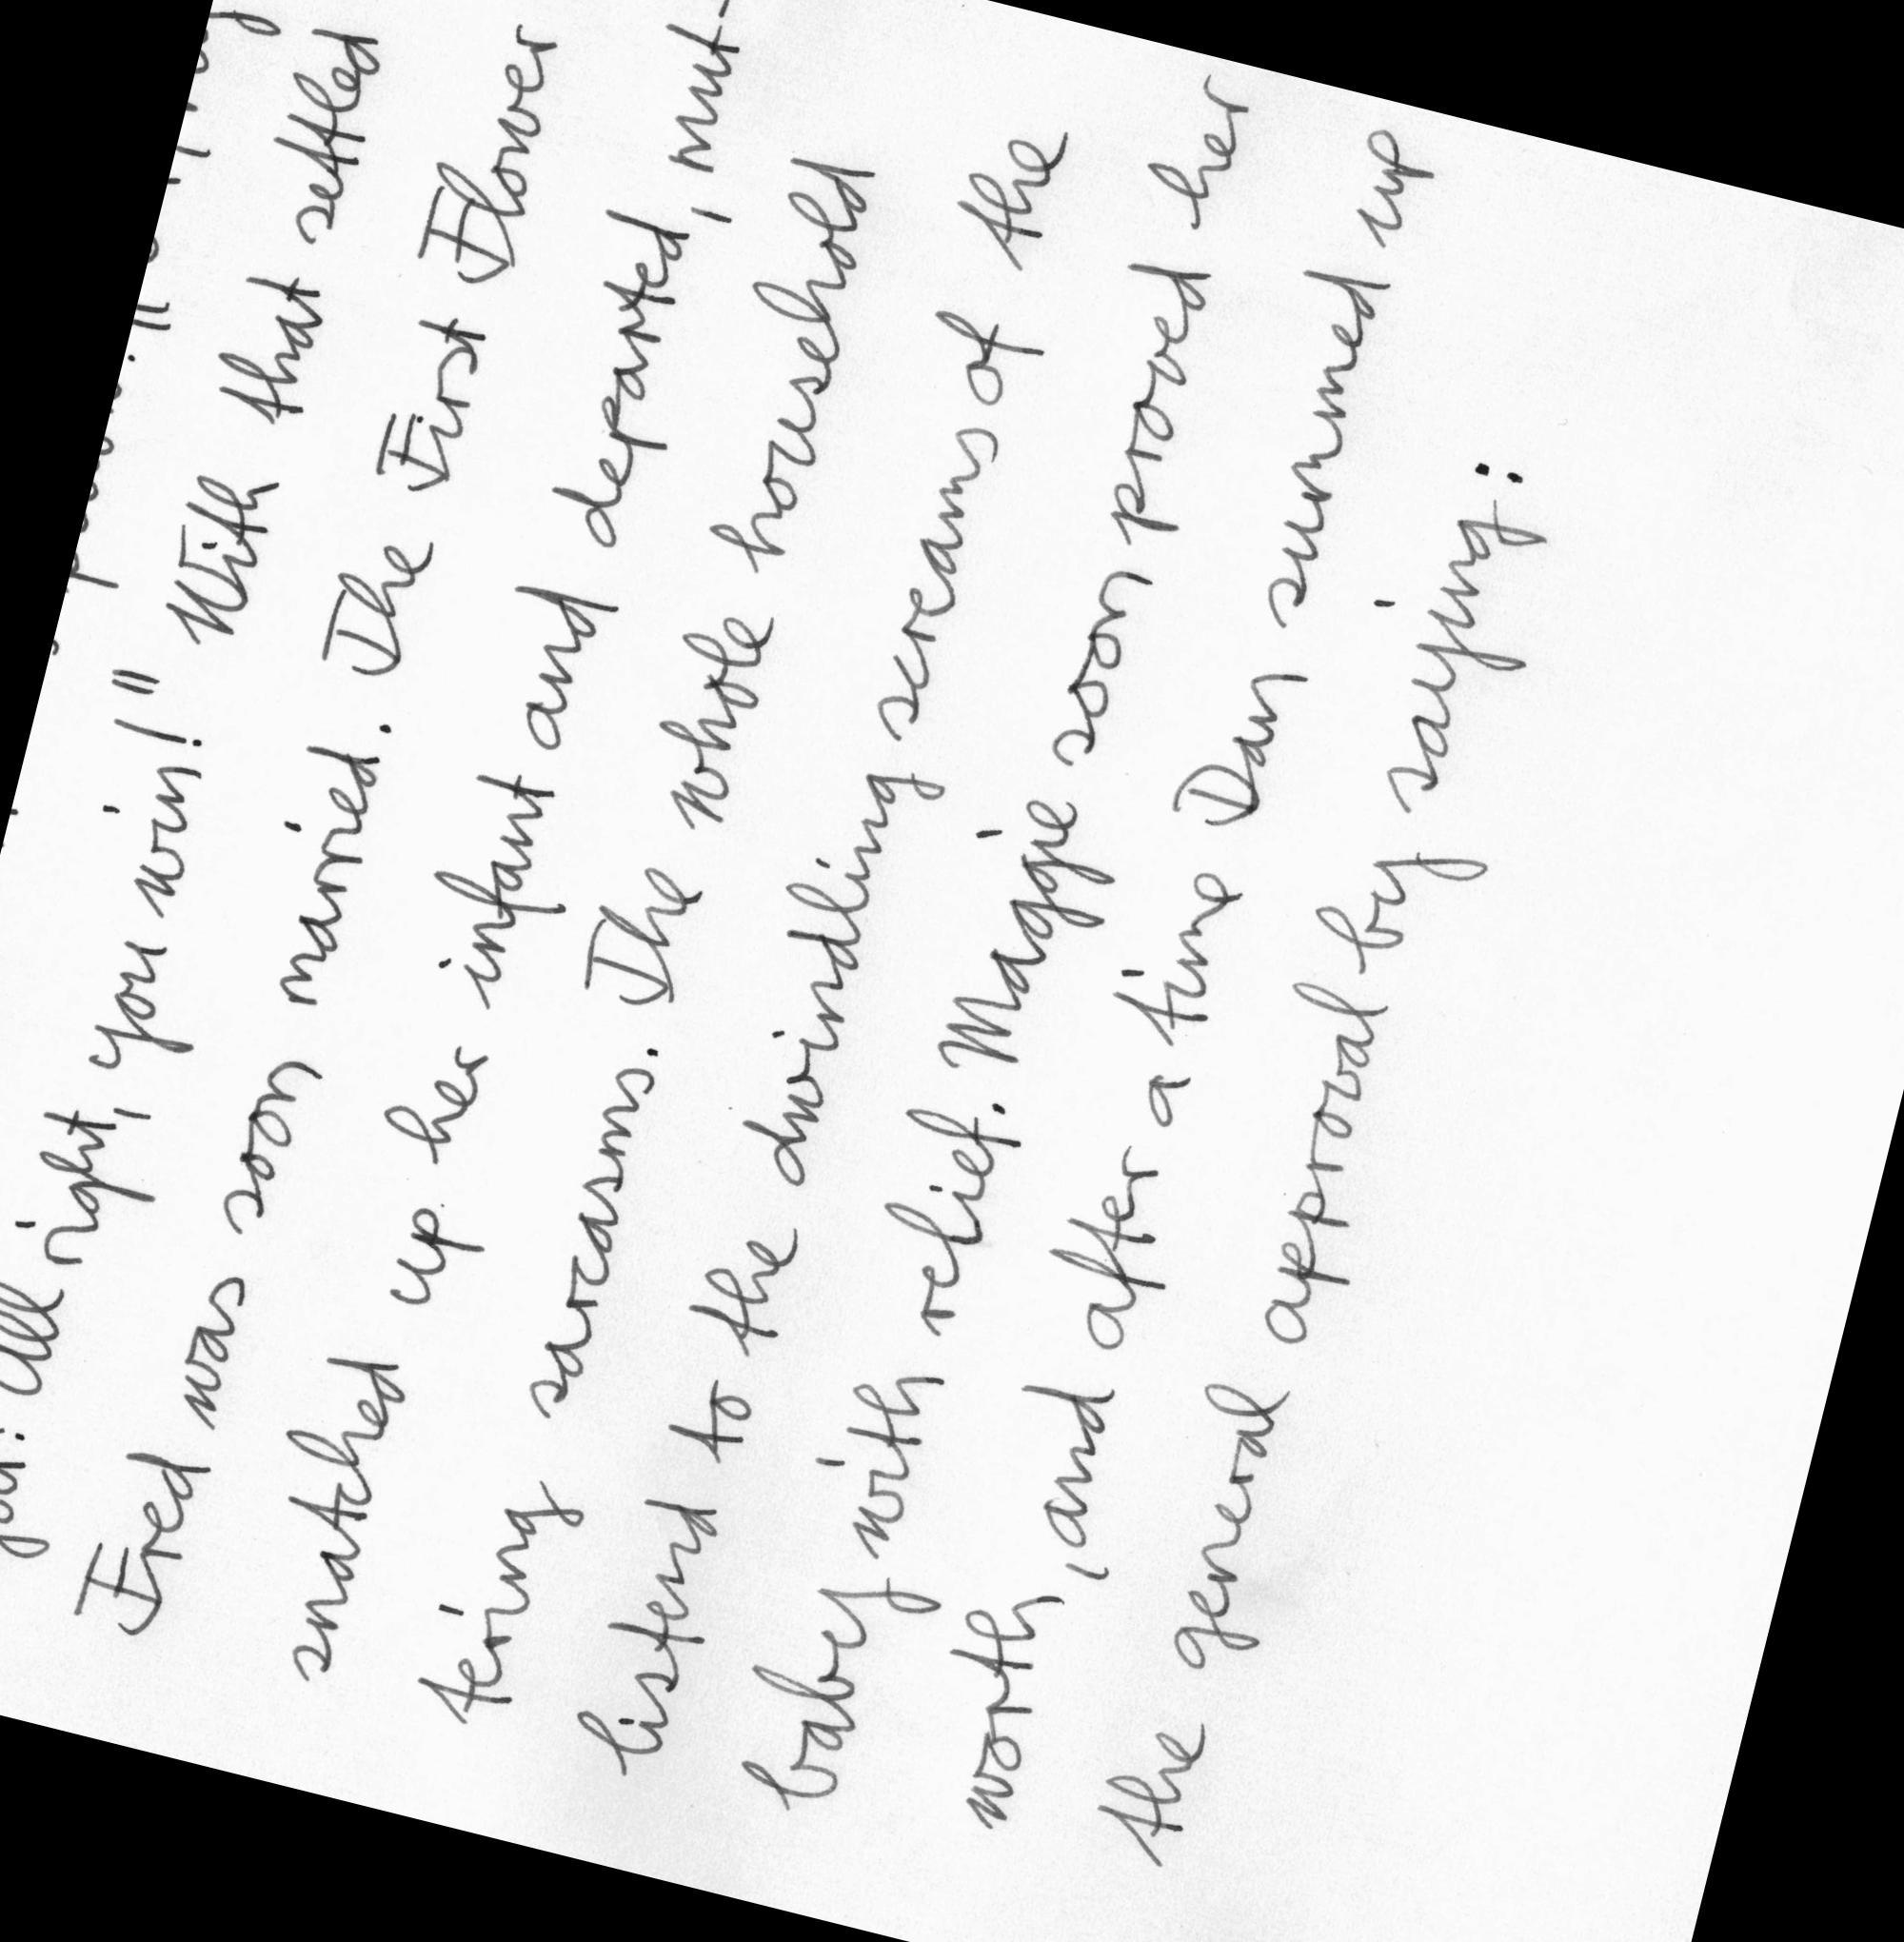 All right, you win!" With that settled
Fred was soon married. The First Flower
snatched up her infant and departed, mut-
tering sarcasms. The whole household
listend to the dwindling screams of the
baby with relief. Maggie soon proved her
worth, and after a time Dan summed up
the general approval by saying: